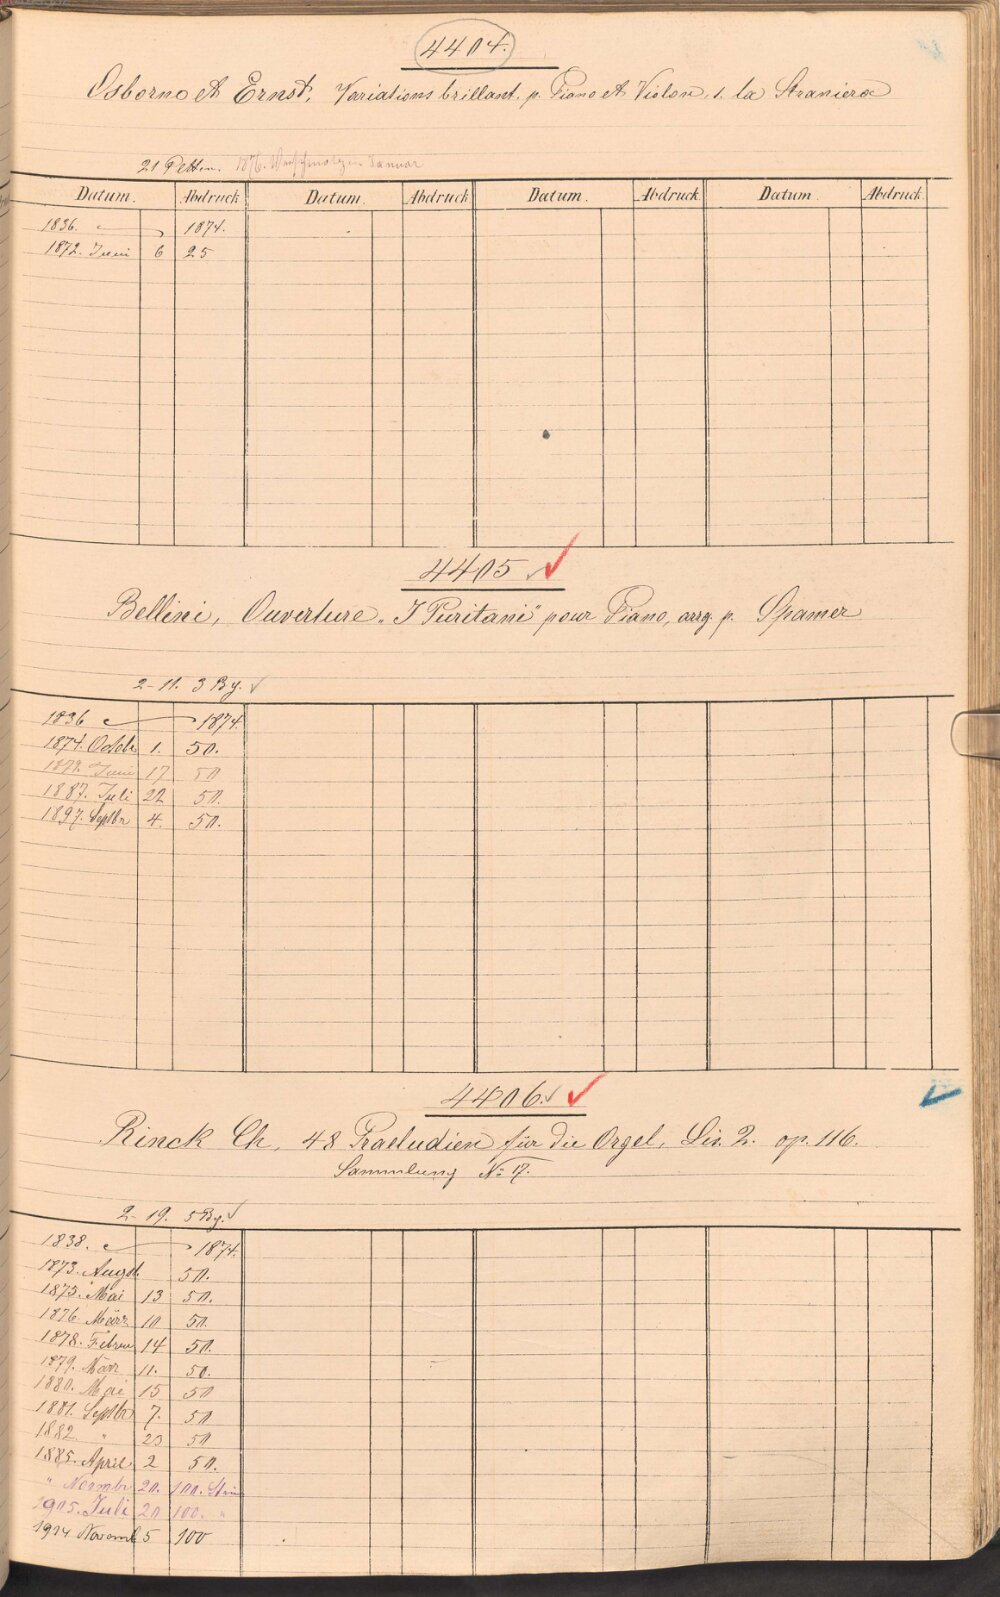 4404.
Osborne et Ernst, Variations brillant. p. Piano et Violon, s. la Straniera
21 Platten. 1876. Januar
Datum. Abdruck Datum. Abdruck Datum. Abdruck. Datum. Abdruck.
1836. 1874.
1872. Juni 6 25
4405
Bellini, Ouverture „I Puritani" pour Piano, arrg. p. Spamer
2-11. 3 Bg. ✓
1836 1874.
1874. Octbr 1. 50.
1877. Juni 17 50
1887. Juli 22 50.
1897. Septbr 4. 50.
4406. ✓
Rinck Ch. 48 Praeludien für die Orgel, Lis. 2. op. 116.
Sammlung No 17.
2-19. 5 Bg. ✓
1838. 1874.
1873. Augst. 50.
1875. Mai 13 50.
1876 März 10 50.
1878. Februar 14 50.
1879. März 11. 50.
1880. Mai 15 50
1881. Septbr 7. 50
1882. " 23 50
1885. April 2 50.
" Novmbr 20. 100. Stein
1905. Juli 20 100. "
1914 Novemb 5 100